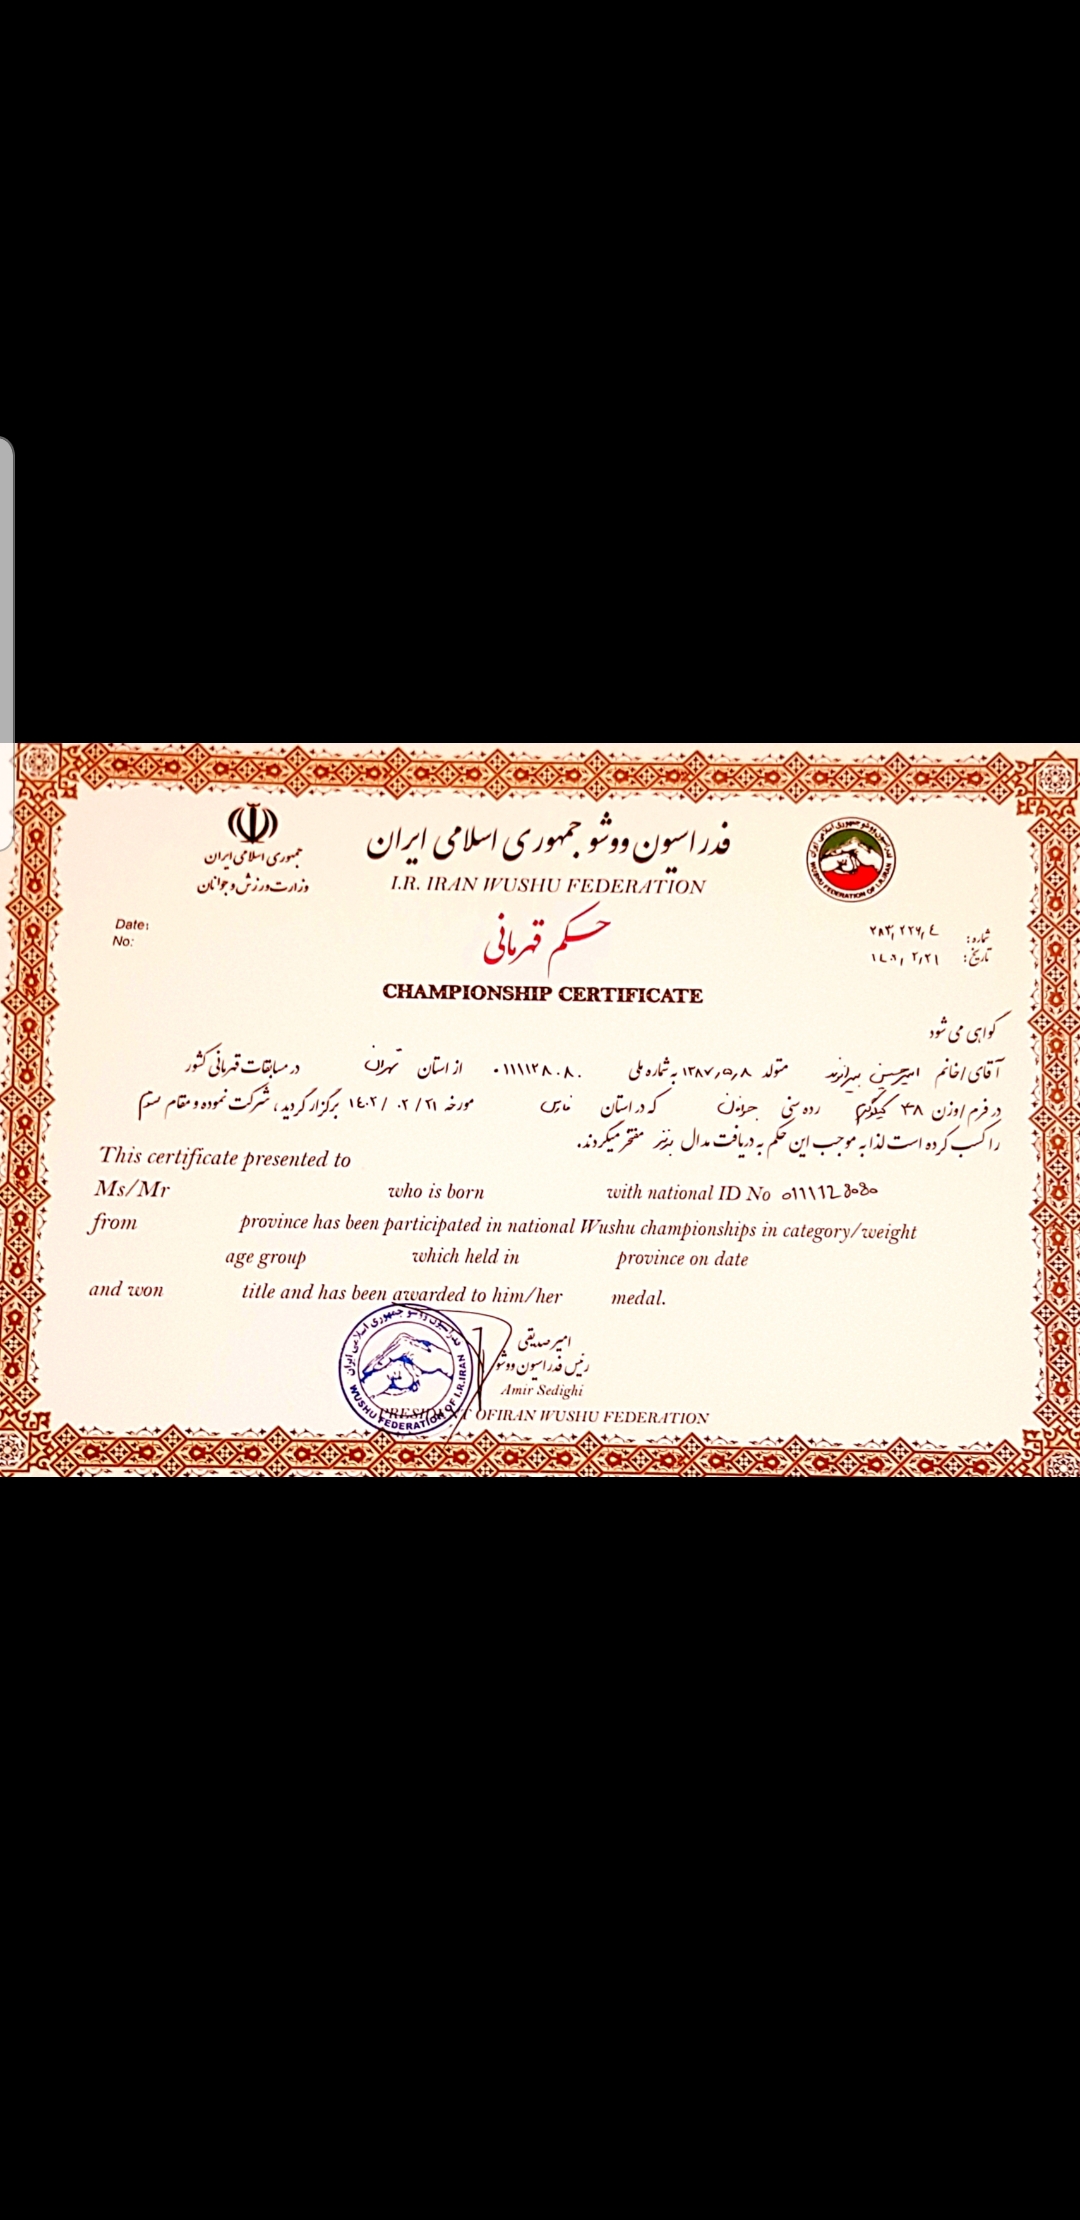 جمهوری اسلامی ایران
وزارت ورزش و جوانان
فدراسیون ووشو جمهوری اسلامی ایران
I.R. IRAN WUSHU FEDERATION
Date:
No:
حکم قهرمانی
CHAMPIONSHIP CERTIFICATE
شماره:
تاریخ:
گواهی می شود
آقای/خانم امیرحسین متولد ۱۳۸۷,۵,۸ به شماره ملی ۰۱۱۱۱۲۸۰۸۰ از استان تهران در مسابقات قهرمانی کشور
در فرم/وزن ۴۸ کیلوگرم رده سنی جوانان که در استان فارس مورخه ۱٤۰۲/۰۲/۲۱ برگزار گردید، شرکت نموده و مقام سوم
را کسب کرده است لذا به موجب این حکم به دریافت مدال برنز مفتخر میگردند.
This certificate presented to
Ms/Mr who is born with national ID No 0111128080
from province has been participated in national Wushu championships in category/weight
age group which held in province on date
and won title and has been awarded to him/her medal.
امیر صدیقی
رئیس فدراسیون ووشو
Amir Sedighi
PRESIDENT OFIRAN WUSHU FEDERATION
فدراسیون ووشو جمهوری اسلامی ایران
WUSHU FEDERATION OF I.R.IRAN